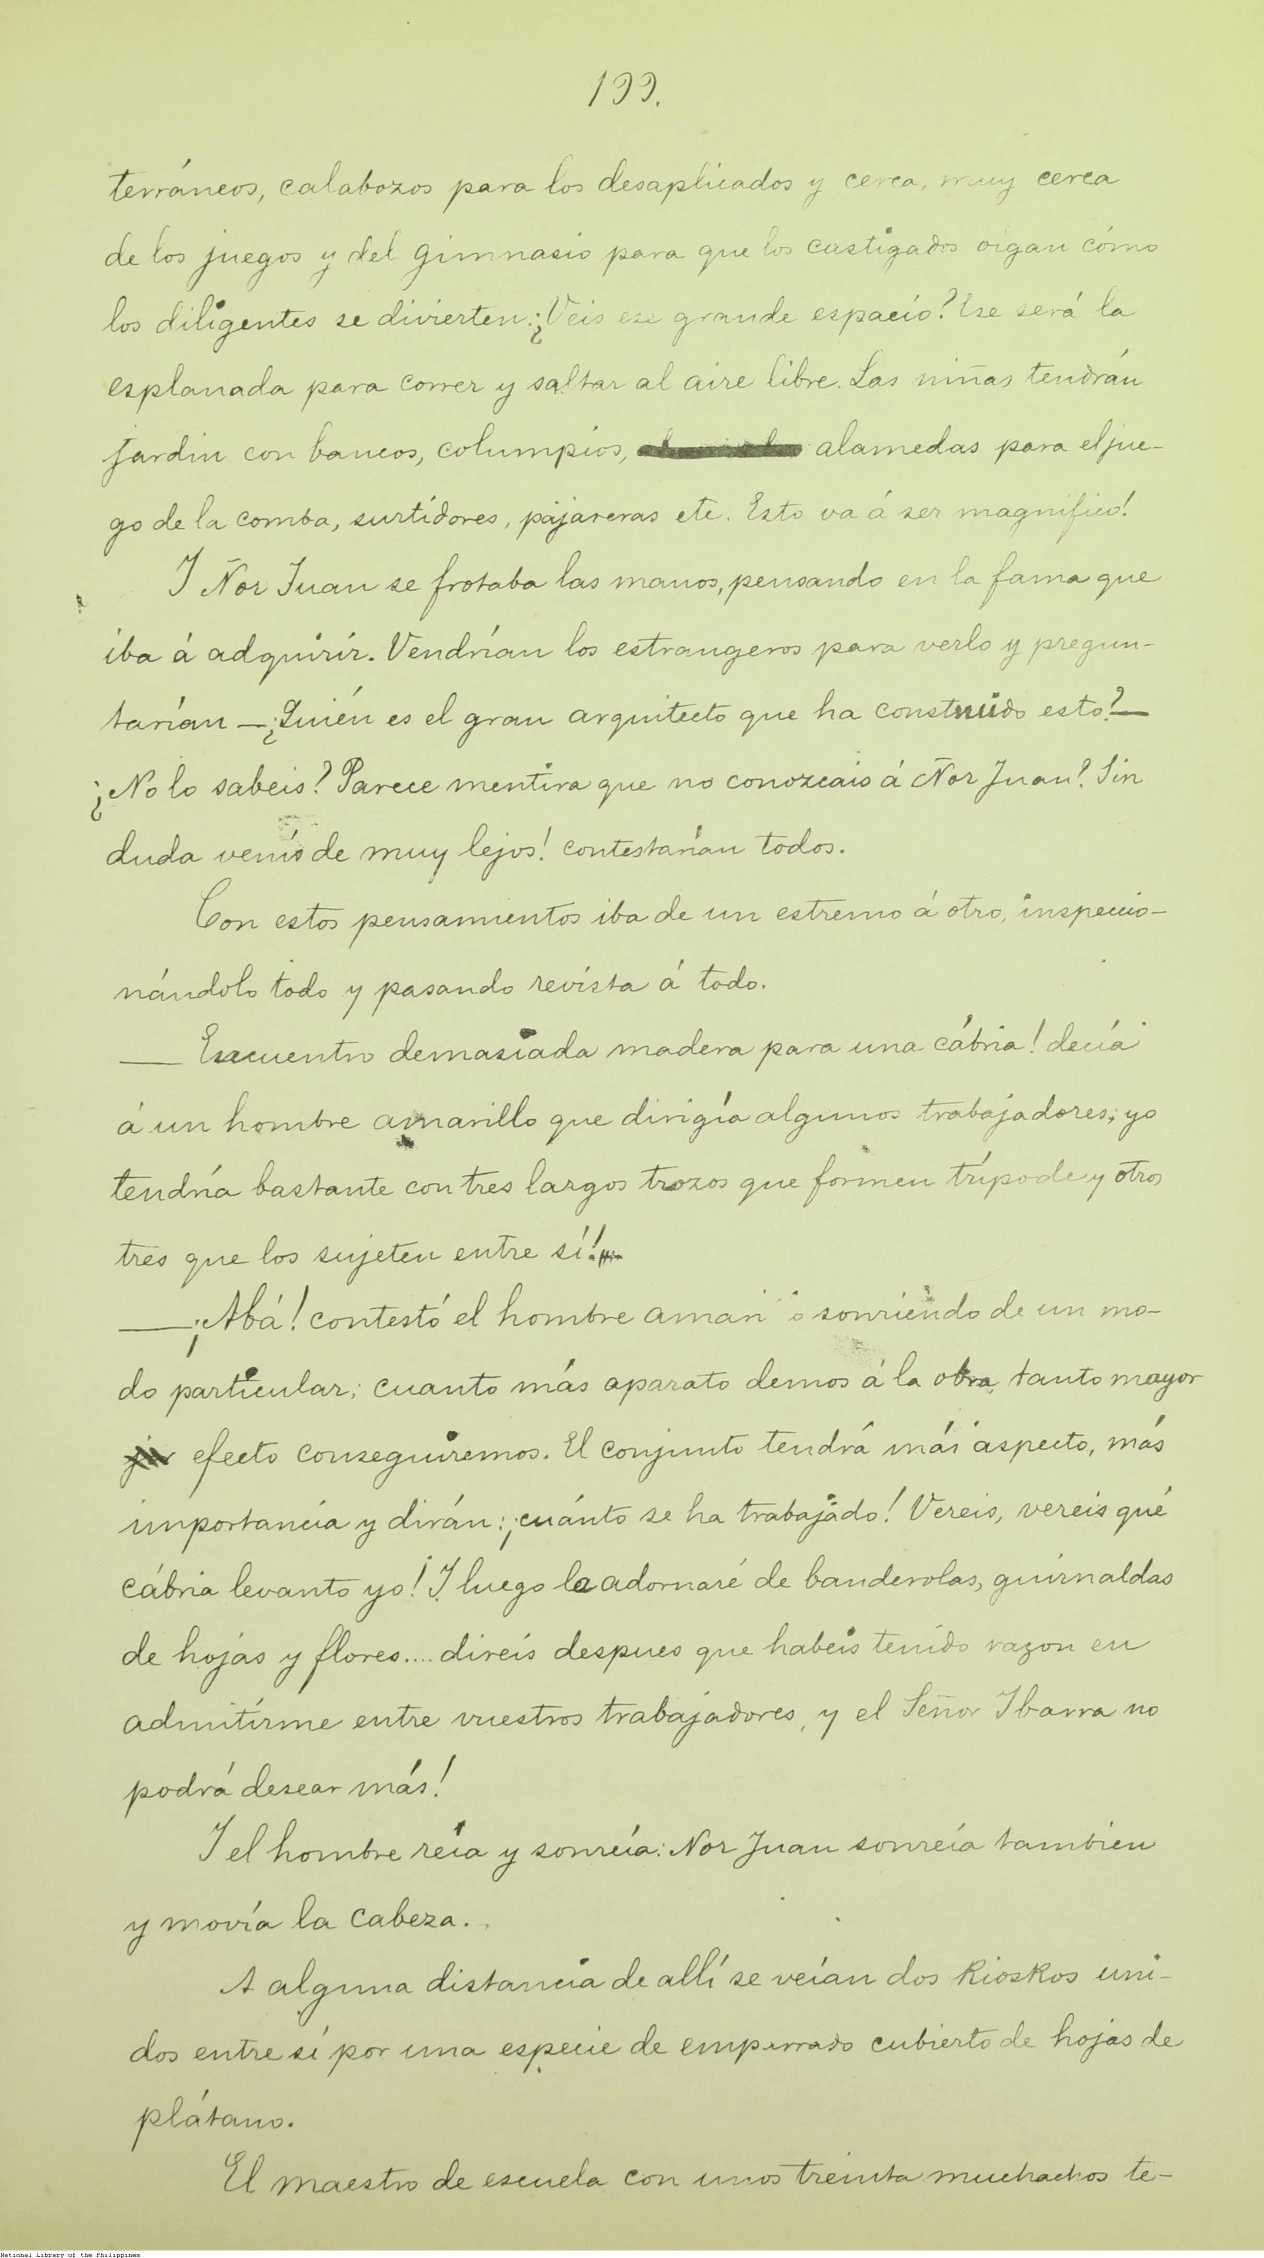 199.
terráneos, calabozos para los desaplicados y cerca, muy cerca
de los juegos y del gimnasio para que los castigados oigan cómo
los diligentes se divierten. ¿Veis ese grande espacio? Ese será la
esplanada para correr y saltar al aire libre. Las niñas tendrán
jardin con bancos, columpios, alamedas para el jue-
go de la comba, surtidores, pajareras etc. Esto va á ser magnífico!
I Ñor Juan se frotaba las manos, pensando en la fama que
iba á adquirir. Vendrían los estrangeros para verlo y pregun-
tarían — ¿Quién es el gran arquitecto que ha construido esto? —
¿No lo sabeis? Parece mentira que no conozcais á Ñor Juan? Sin
duda venís de muy lejos! contestarían todos.
Con estos pensamientos iba de un estremo á otro, inspeccio-
nándolo todo y pasando revista á todo.
— Encuentro demasiada madera para una cábria! decía
á un hombre amarillo que dirigía algunos trabajadores; yo
tendría bastante con tres largos trozos que formen trípode y otros
tres que los sujeten entre sí!
— ¡Abá! contestó el hombre amarillo sonriendo de un mo-
do particular; cuanto más aparato demos á la obra, tanto mayor
efecto conseguiremos. El conjunto tendrá más aspecto, más
importancia y dirán: ¡cuánto se ha trabajado! Vereis, vereis qué
cábria levanto yo! I luego la adornaré de banderolas, guirnaldas
de hojas y flores.... direis despues que habeis tenido razon en
admitirme entre vuestros trabajadores, y el Señor Ibarra no
podrá desear más!
I el hombre reía y sonreía: Ñor Juan sonreía tambien
y movía la cabeza.
A alguna distancia de allí se veían dos kioskos uni-
dos entre sí por una especie de emparrado cubierto de hojas de
plátano.
El maestro de escuela con unos treinta muchachos te-
National Library of the Philippines